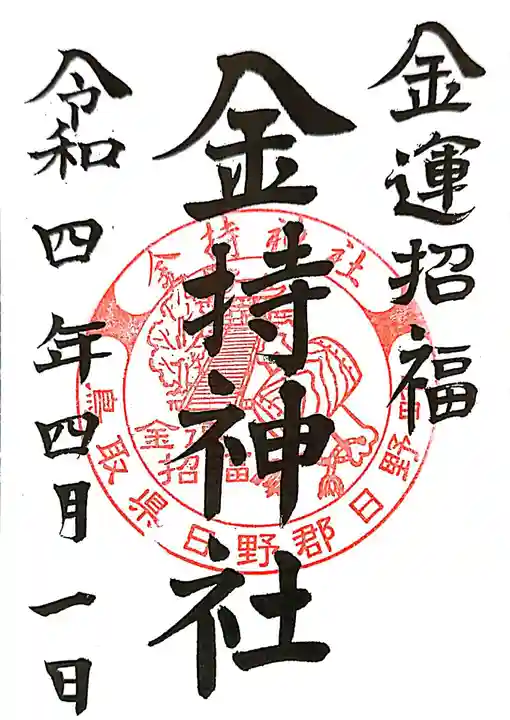 金運招福
金持神社
令和四年四月一日
金持神社
鳥取県日野郡日野
金運
招福